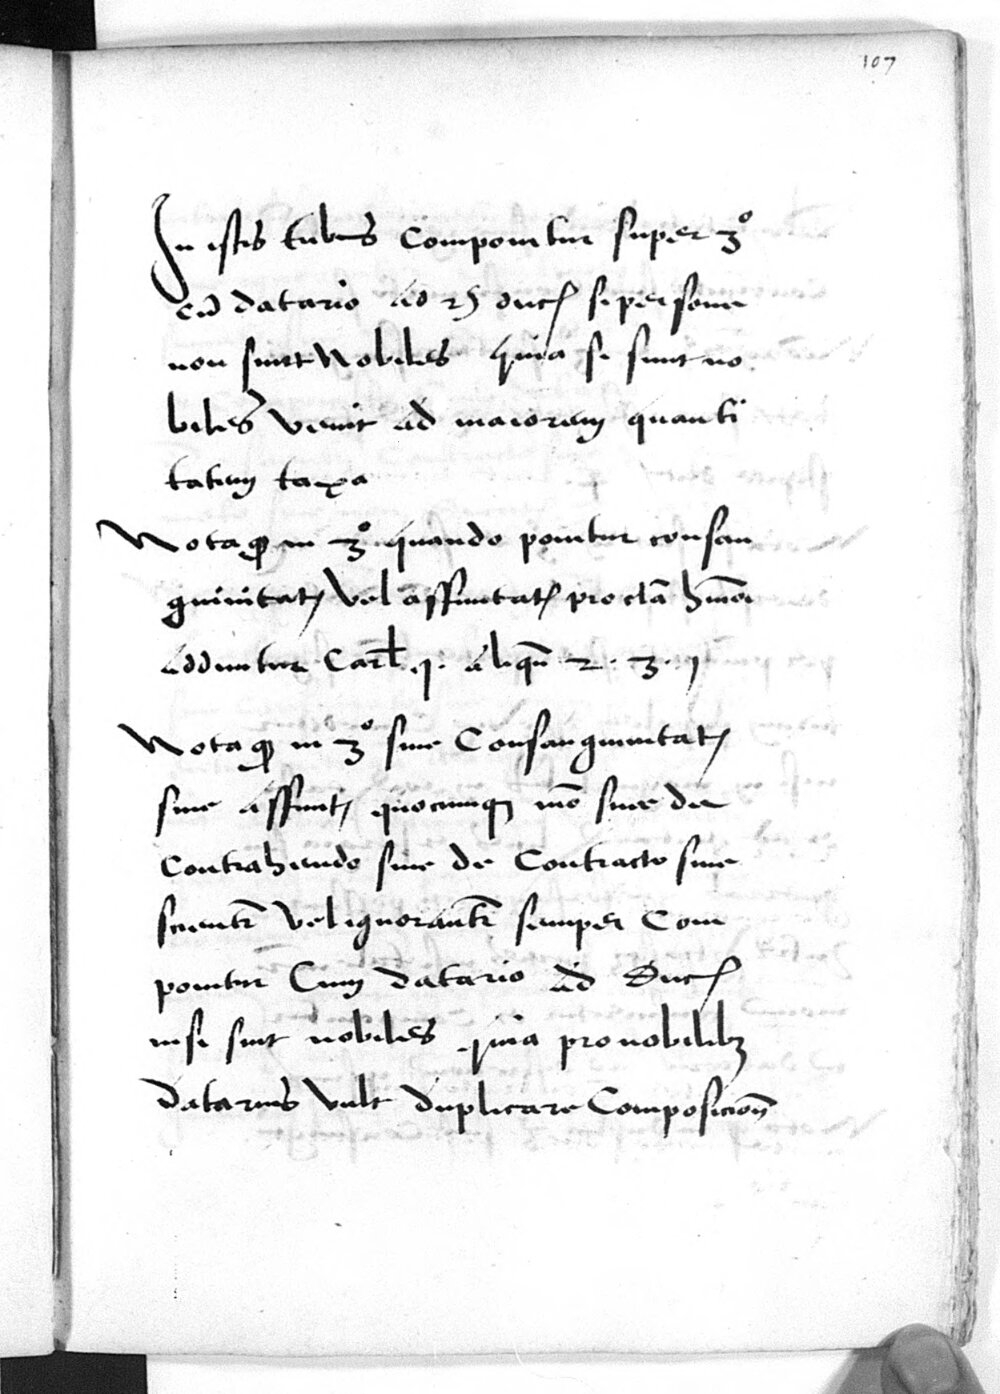 107
In istis tribus componitur super 3º
cū datario ad 25 duc̄ si persone
non sunt Nobiles quia si sunt no
biles venit ad maiorem quanti
tatem taxa
Nota qđ in 3º quando ponitur consan
guinitatꝭ vel affinitatꝭ pro cła hm̄oi
adduntur Carł. q. aliqn̄ 2. 3.
Nota qđ in 3º siue Consanguinitatꝭ
siue affinitꝭ quocunqꝫ mō siue de
Contrahendo siue de Contracto siue
scienter̄ vel ignoranter̄ semper Com
ponitur Cum datario ad Duc̄
nisi sint nobiles quia pro nobilibꝫ
Datarius vult duplicare Composicion̄